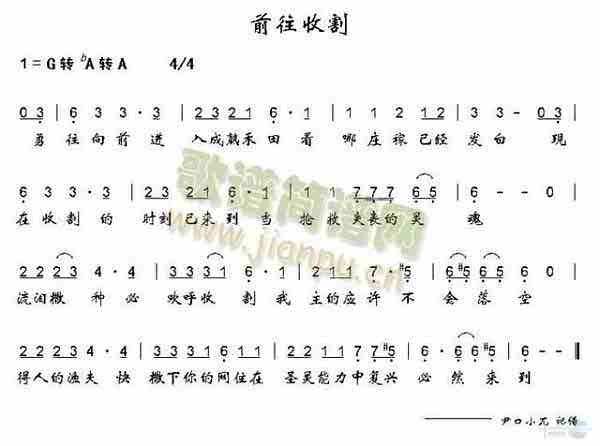 前往收割
1=G转bA转A 4/4
03 | 6 3 3·3 | 23 21 6·1 | 1 1 2 12 | 3 3 - 03 |
勇 往 向 前 进 入成熟禾田看 哪庄稼已经发白 现
6 3 3·3 | 23 21 6·1 | 1·1 777 65 | 6 - - 0 |
在 收 割 的 时刻已来到当 抢收失丧的灵 魂
22 23 4·4 | 33 31 6·1 | 11 12 7·#5 | 6 65 6 0 |
流泪撒 种 必 欢呼收 割 我 主的应许 不 会落空
22 23 4·4 | 33 31 6·1 | 11 12 77#5 | 6·66#5 6 - ‖
得人的渔夫 快 撒下你的网住在 圣灵能力中复兴 必 然来到
歌谱简谱网
www.jianpu.cn
尹口小兀 记谱